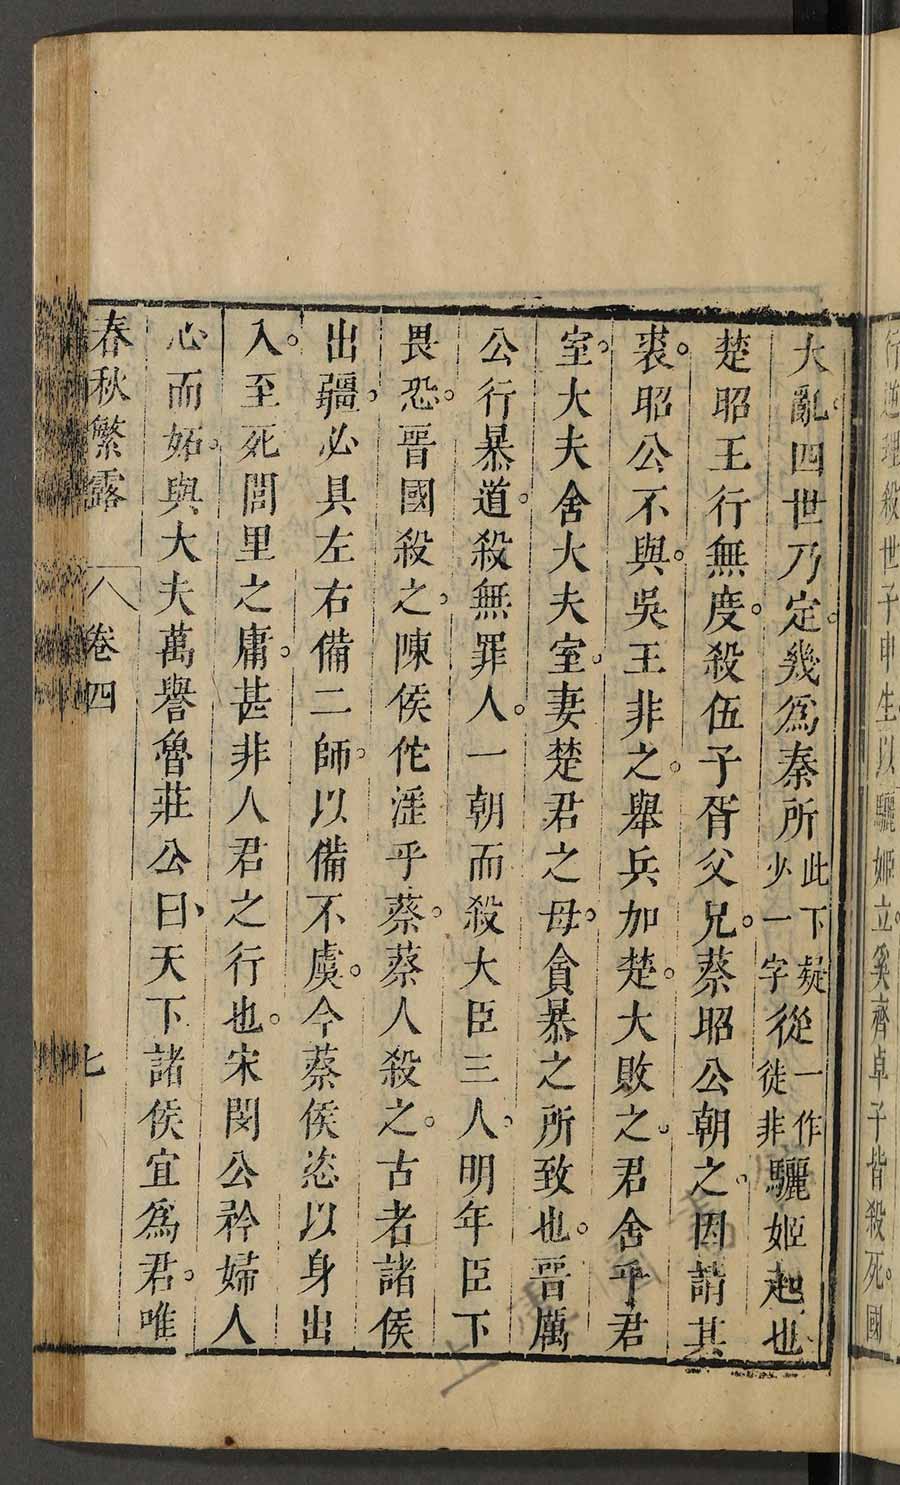 行逆理殺世子申生以驪姬立奚齊卓子皆殺死國
大亂。四世乃定。幾爲秦所此下疑少一字從一作徒非驪姬起也
楚昭王行無度。殺伍子胥父兄。蔡昭公朝之。因請其
裘。昭公不與。吳王非之。舉兵加楚。大敗之。君舍乎君
室。大夫舍大夫室。妻楚君之母。貪暴之所致也。晉厲
公行暴道。殺無罪人。一朝而殺大臣三人。明年臣下
畏恐。晉國殺之。陳侯佗淫乎蔡。蔡人殺之。古者諸侯
出疆。必具左右備二師。以備不虞。今蔡侯恣以身出
入。至死閭里之庸。甚非人君之行也。宋閔公矜婦人
心而妬。與大夫萬譽魯莊公曰、天下諸侯宜爲君。唯
春秋繁露 卷四 七